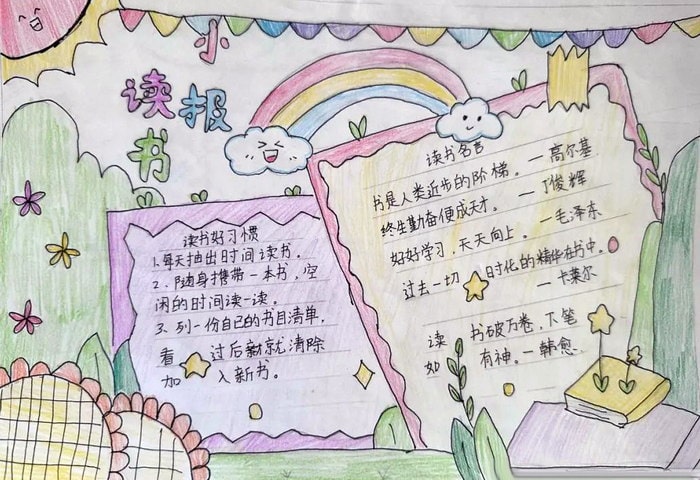 读书小报
读书好习惯
1.每天抽出时间读书。
2.随身携带一本书,空
闲的时间读一读。
3.列一份自己的书目清单,
看 过后就清除
加 入新书。
读书名言
书是人类近步的阶梯。—高尔基
终生勤奋便成天才。—丁俊辉
好好学习,天天向上。—毛泽东
过去一切 时化的精华在书中。
—卡莱尔
读 书破万卷,下笔
如 有神。—韩愈